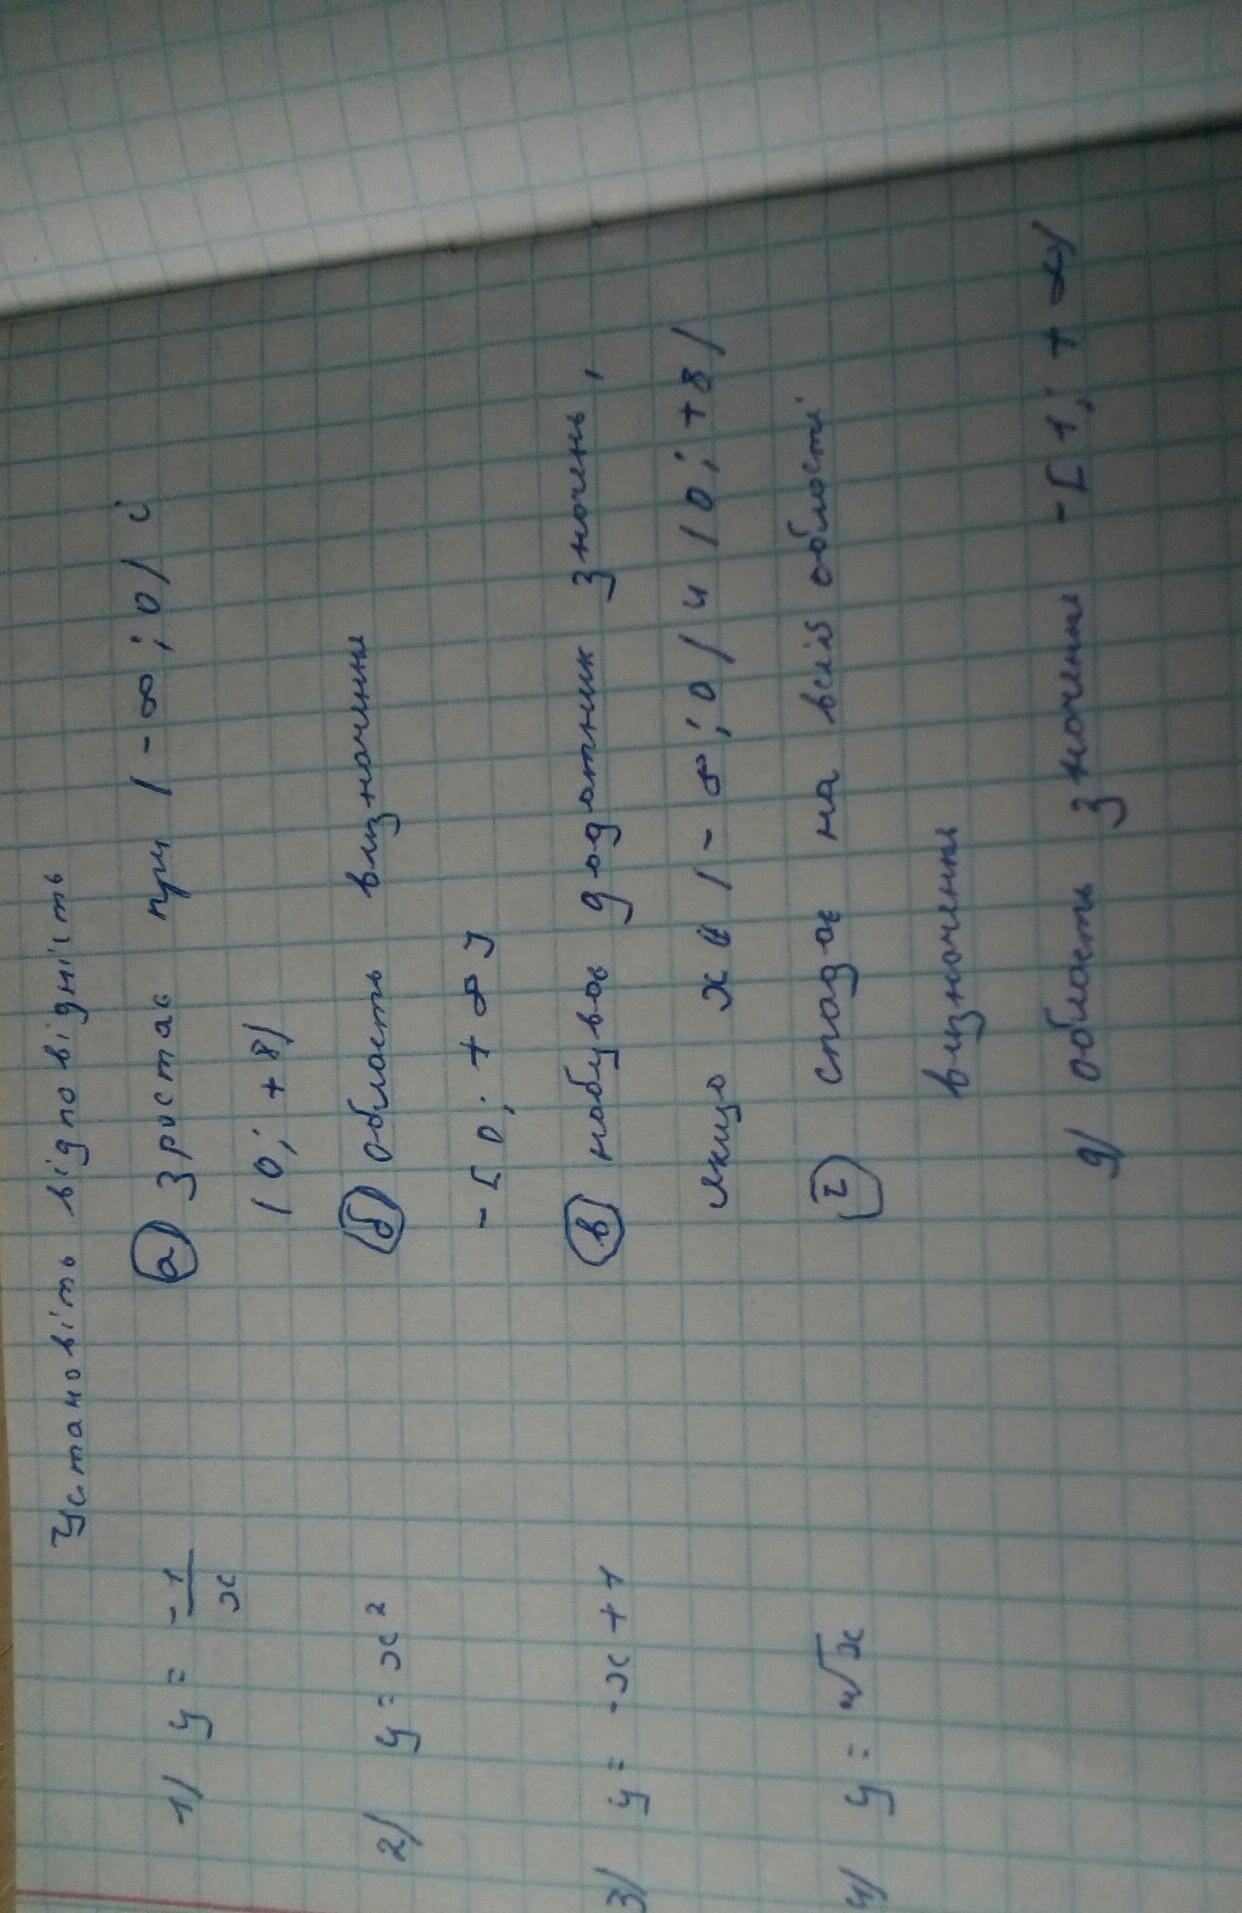 Установіть відповідність
1) y = -1/x
а) Зростає при (-∞; 0) і
(0; +8)
2) y = x²
б) область визначення
- [0; +∞)
3) y = -x + 1
в) набуває додатних значень,
якщо x є (-∞; 0) и (0; +8)
4) y = √x
г) спадає на всій області
визначення
д) область значення - [1; +∞)